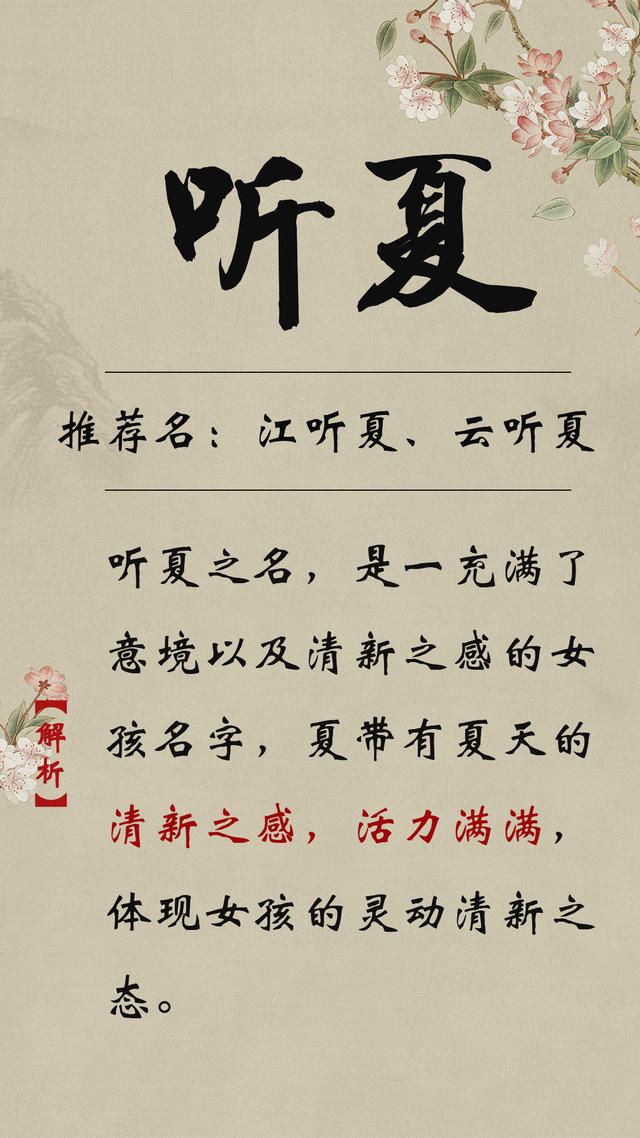 听夏
推荐名：江听夏、云听夏
听夏之名，是一充满了
意境以及清新之感的女
孩名字，夏带有夏天的
清新之感，活力满满，
体现女孩的灵动清新之
态。
【解析】